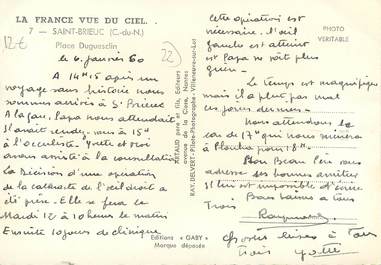 LA FRANCE VUE DU CIEL...
7 - SAINT-BRIEUC (C.-du-N.)
12€
Place Duguesclin
22
le 6 janvier 60
A 14H15 après un
voyage sans histoire nous
sommes arrivés à St Brieuc
A la gare, papa nous attendait
à 15H
à l'occuliste. Yvette et moi
avons assisté à la consultation
La décision d'une opération
de la cataracte de l'oeil droit a
été prise. Elle se fera le
Mardi 12 à 10 heures le matin
Ensuite 10 jours de clinique
Editions "GABY"
Marque déposée
ARTAUD père et fils, Editeurs
avenue de la Close, Nantes
RAY. DELVERT - Pilote-Photographe - Villeneuve-sur-Lot
PHOTO
VERITABLE
Cette opération est
nécessaire. L'oeil
gauche est atteint
et Papa ne voit plus
Le temps est magnifique
mais il a plu
ces jours derniers
Nous attendons le
car de 17H qui nous mènera
à Plouha pour 18H.
Mon Beau Père vous
adresse ses bonnes amitiés
Il lui est impossible d'écrire
Bons baisers à tous
Trois
Raymond
Grosses bises à tous
trois Yvette